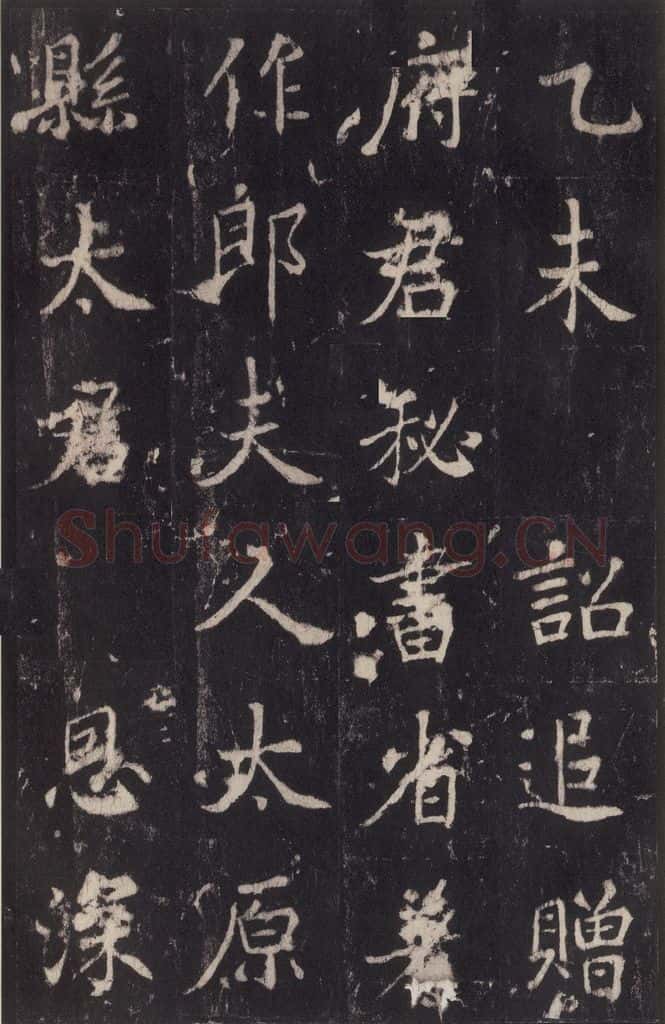 乙未 詔追贈
府君秘書省著
作郎夫人太原
縣太君 恩深
Shufawang.CN